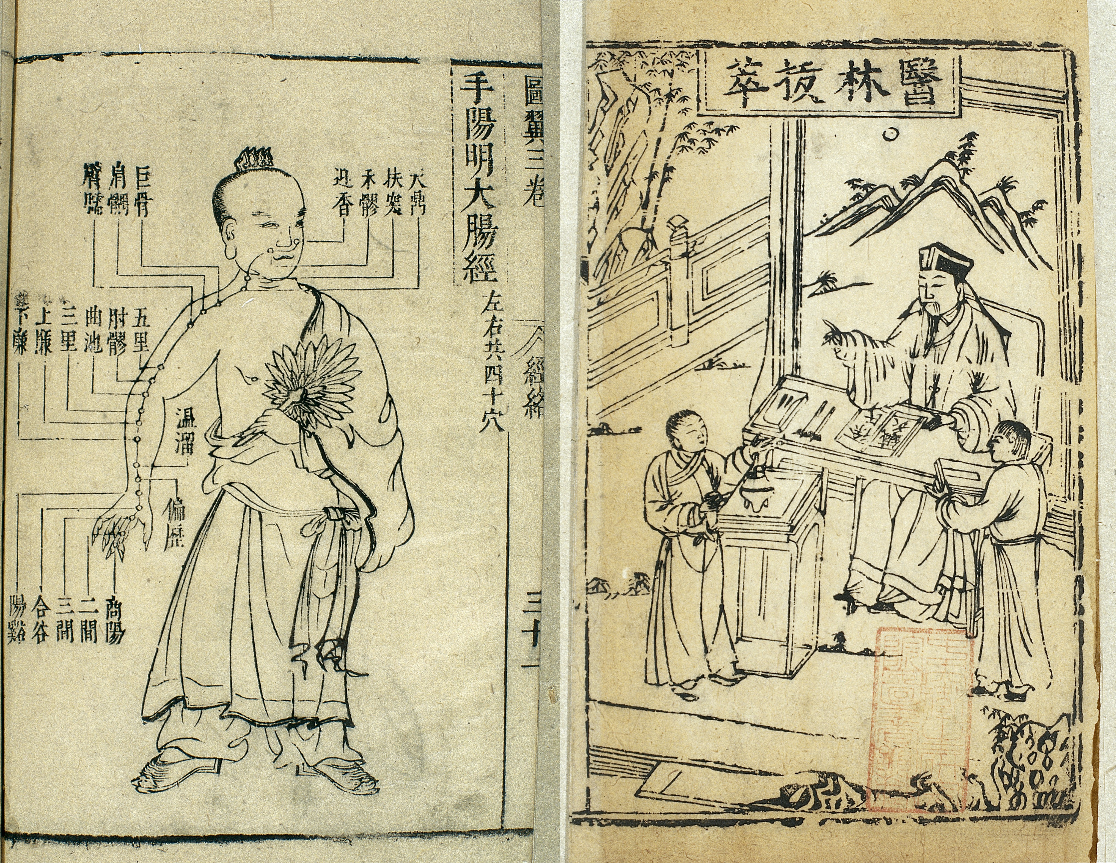 圖翼三卷
經絡
三十一
手陽明大腸經
左右共四十穴
天鼎
扶突
禾髎
迎香
巨骨
肩髃
臂臑
五里
肘髎
曲池
三里
上廉
下廉
温溜
偏歷
商陽
二間
三間
合谷
陽谿
醫林拔萃